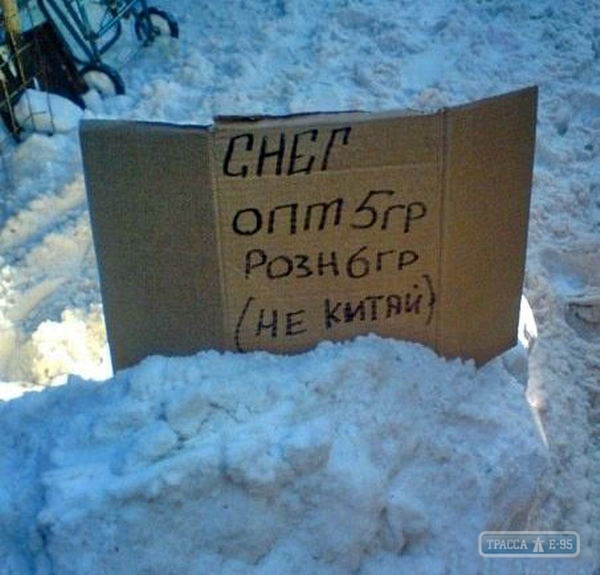 СНЕГ
ОПТ 5ГР
РОЗН 6ГР
(НЕ КИТАЙ)
ТРАССА E-95